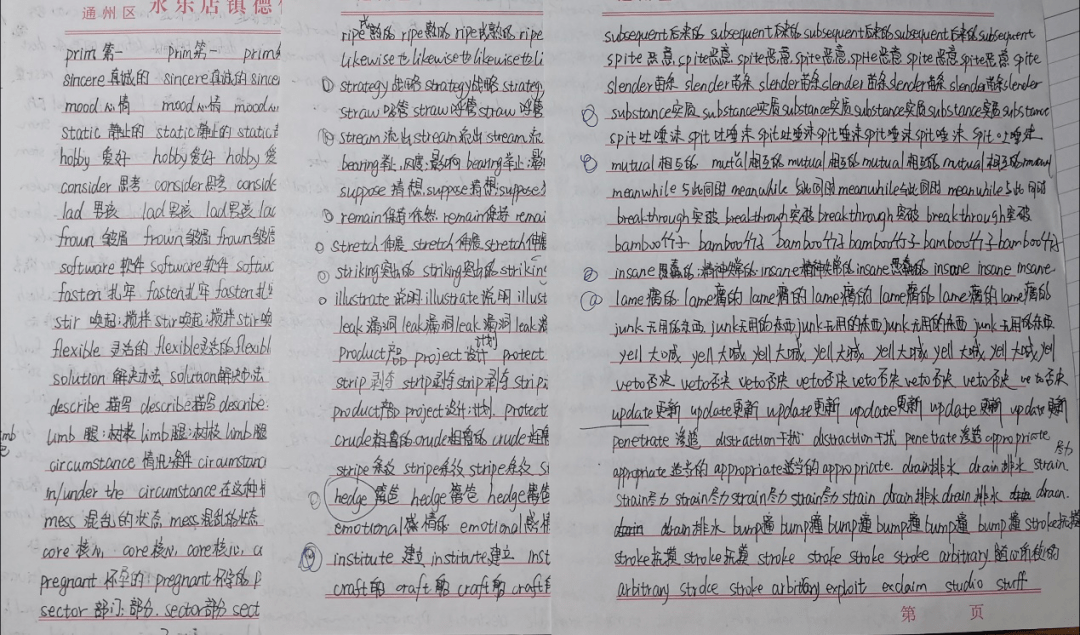 通州区 永乐店镇德
prim 第一 prim 第一 prim
sincere 真诚的 sincere 真诚的 since
mood 心情 mood 心情 mood
static 静止的 static 静止的 static
hobby 爱好 hobby 爱好 hobby 爱
consider 思考 consider 思考 conside
lad 男孩 lad 男孩 lad 男孩 lad
frown 皱眉 frown 皱眉 frown 皱眉
software 软件 software 软件 softwa
fasten 扎牢 fasten 扎牢 fasten 扎
stir 唤起;搅拌 stir 唤起;搅拌 stir 唤
flexible 灵活的 flexible 灵活的 flexibl
solution 解决办法 solution 解决办法
describe 描写 describe 描写 describe
limb 腿;树枝 limb 腿;树枝 limb 腿
circumstance 情况;条件 circumstanc
in/under the circumstance 在这种
mess 混乱的状态 mess 混乱的状态
core 核心 core 核心 core 核心 c
pregnant 怀孕的 pregnant 怀孕的 p
sector 部门;部分 sector 部分 sect
ripe 成熟的 ripe 熟的 ripe 成熟的 ripe
likewise 也 likewise 也 likewise 也 li
strategy 战略 strategy 战略 strateg
straw 吸管 straw 吸管 straw 吸管
stream 流出 stream 流出 stream 流
bearing
suppose 猜想 suppose 猜想 suppose
remain 保持 依然 remain 保持 remai
stretch 伸展 stretch 伸展 stretch 伸展
striking 突出的 striking 突出的 striking
illustrate 说明 illustrate 说明 illust
leak 漏洞 leak 漏洞 leak 漏洞 leak 漏
product 产品 project 设计 计划 protect
strip 剥夺 strip 剥夺 strip 剥夺 strip
product 产品 project 设计;计划 protect
crude 粗鲁的 crude 粗鲁的 crude 粗鲁
stripe 条纹 stripe 条纹 stripe 条纹 st
hedge 篱笆 hedge 篱笆 hedge 篱笆
emotional 感情的 emotional 感情
institute 建立 institute 建立 inst
craft craft craft craft
subsequent 后来的 subsequent 后来的 subsequent 后来的 subsequent 后来的 subsequent
spite 恶意 spite 恶意 spite 恶意 spite 恶意 spite 恶意 spite 恶意 spite
slender 苗条 slender 苗条 slender 苗条 slender 苗条 slender 苗条 slender
substance 实质 substance 实质 substance 实质 substance 实质 substance 实质 substance
spit 吐唾沫 spit 吐唾沫 spit 吐唾沫 spit 唾沫 spit 唾沫 spit 吐唾沫
mutual 相互的 mutual 相互的 mutual 相互的 mutual 相互的 mutual 相互的 mutual
meanwhile 与此同时 meanwhile 与此同时 meanwhile 与此同时 meanwhile 与此同时
breakthrough 突破 breakthrough 突破 breakthrough 突破 breakthrough 突破
bamboo 竹子 bamboo 竹子 bamboo 竹子 bamboo 竹子 bamboo 竹子
insane 愚蠢的;精神失常的 insane 精神失常的 insane 愚蠢的 insane insane insane
lame 瘸的 lame 瘸的 lame 瘸的 lame 瘸的 lame 瘸的 lame 瘸的 lame 瘸的
junk 无用的东西 junk 无用的东西 junk 无用的东西 junk 无用的东西 junk 无用的东西
yell 大喊 yell 大喊 yell 大喊 yell 大喊 yell 大喊 yell 大喊 yell
veto 否决 veto 否决 veto 否决 veto 否决 veto 否决 veto 否决 veto 否决
update 更新 update 更新 update 更新 update 更新 update 更新 update 更新
penetrate 渗透 distraction 干扰 distraction 干扰 penetrate 渗透 appropriate
appropriate 适当的 appropriate 适当的 appropriate drain 排水 drain 排水 strain 尽力
strain 尽力 strain 尽力 strain 尽力 strain 尽力 strain drain 排水 drain 排水 drain
drain 排水 bump 撞 bump 撞 bump 撞 bump 撞 bump 撞 bump 撞 stroke 抚摸
stroke 抚摸 stroke 抚摸 stroke stroke stroke stroke arbitrary 随心所欲的
arbitrary stroke stroke arbitrary exploit exclaim studio stuff
第 页